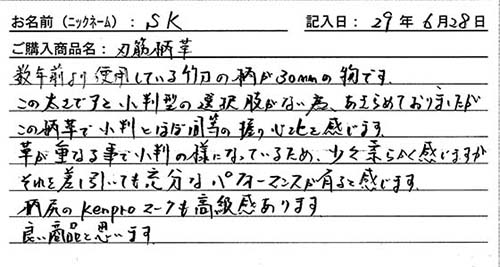 お名前（ニックネーム）：SK 記入日：29年6月28日
ご購入商品名：刃筋柄革
数年前より使用している竹刀の柄が30mmの物です。
この太さですと小判型の選択肢がない為、あきらめておりましたが
この柄革で小判とほぼ同等の握り心地と感じます。
革が重なる事で小判の様になっているため、少々柔らかく感じますが
それを差し引いても充分なパフォーマンスが有ると感じます。
柄尻のkenproマークも高級感あります
良い商品と思います